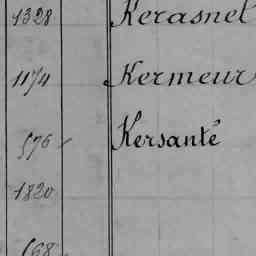 1328 Kerasnel
1174 Kermeur
576 Kersanté
1820
568